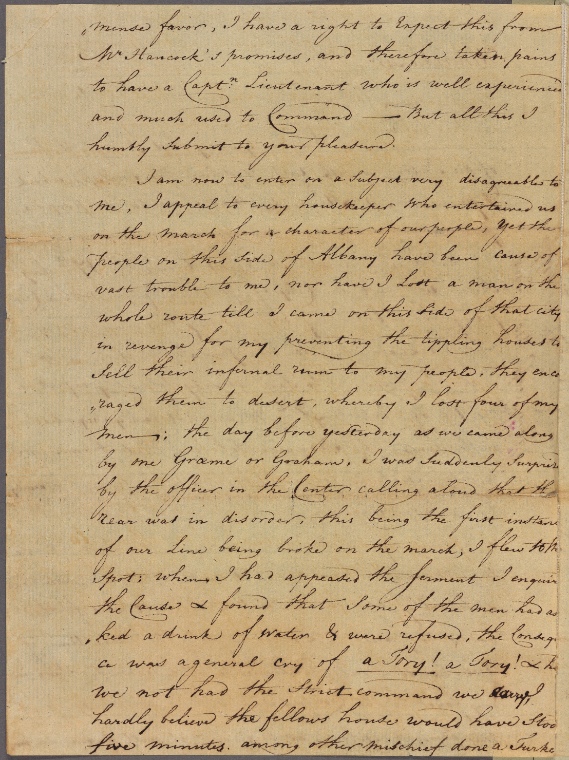 mense favor, I have a right to Expect this from
Mr Hancock's promises, and therefore taken pains
to have a Captn Lieutenant who is well experienced
and much used to Command — But all this I
humbly Submit to your pleasure.
I am now to enter on a Subject very disagreeable to
me, I appeal to every housekeeper Who entertained us
on the march for a character of our people, Yet the
people on this Side of Albany have been cause of
vast trouble to me, nor have I Lost a man on the
whole route till I came on this Side of that city
in revenge for my preventing the tippling houses to
Sell their infernal rum to my people, they enco
raged them to desert, whereby I lost four of my
men; the day before yesterday as we came along
by one Græme or Graham, I was Suddenly Surpris
by the officer in the Center calling aloud that th
rear was in disorder, this being the first instan
of our Line being broke on the march, I flew to th
Spot; when I had appeased the ferment I enquir
the Cause & found that Some of the men had as
ked a drink of water & were refused, the Conseq
ce was a general cry of a Tory! a Tory! &
we not had the Strict command we
hardly believe the fellows house would have Stoo
five minutes. among other mischief done a Turke